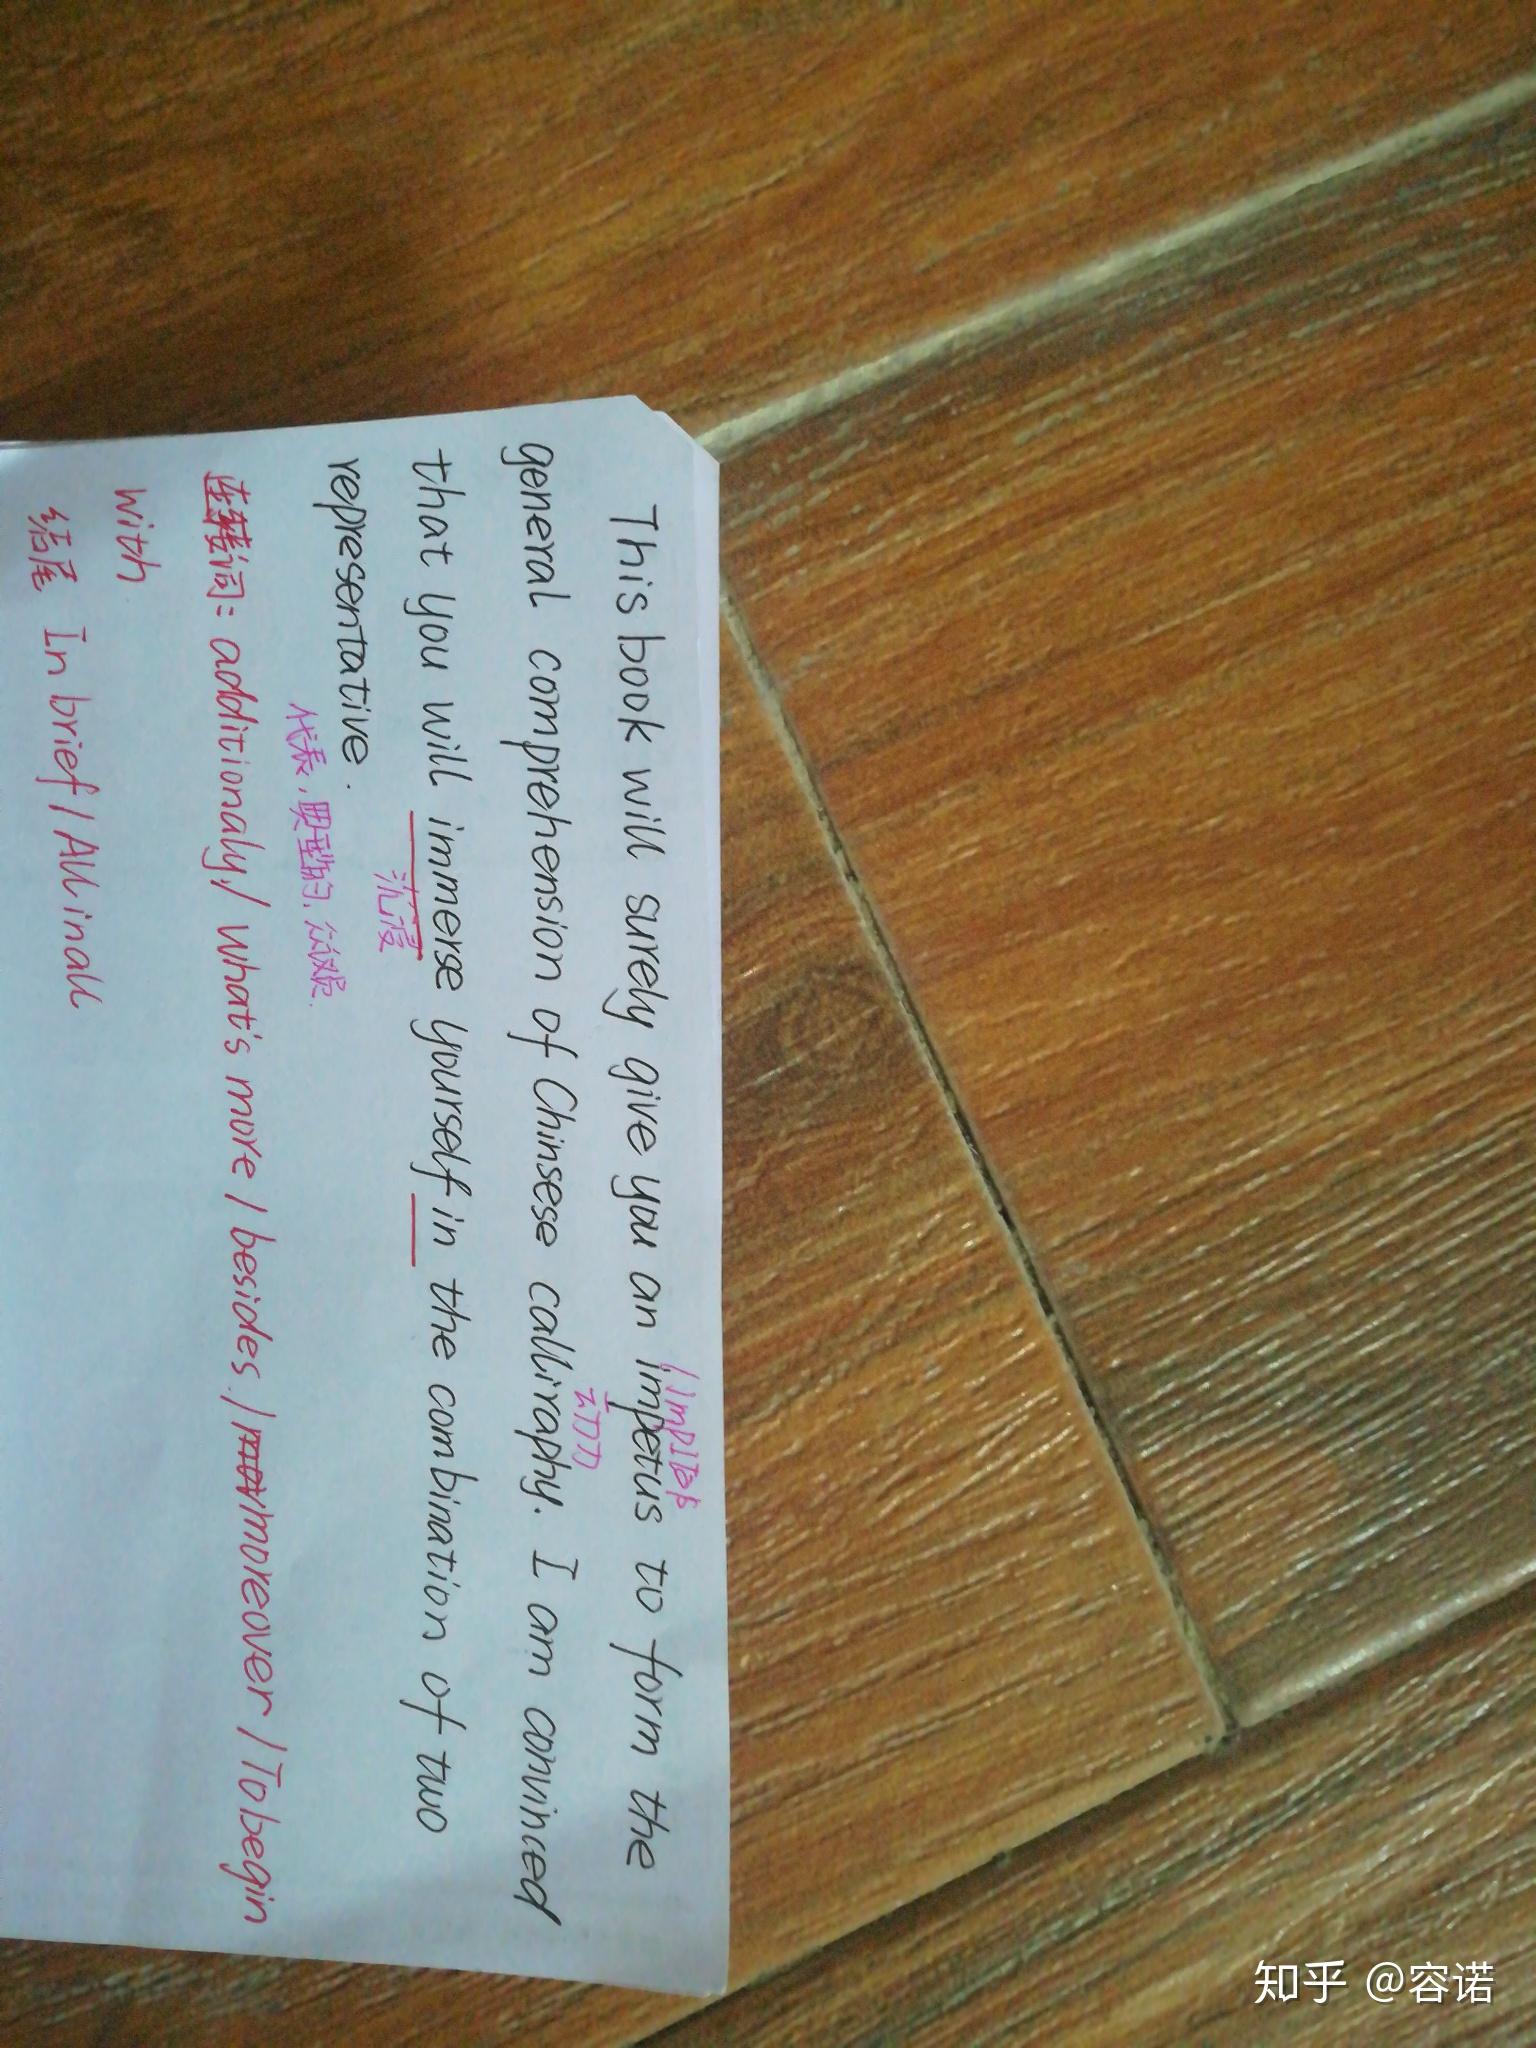 This book will surely give you an impetus to form the
动力
general comprehension of Chinsese calliraphy. I am convinced
that you will immerse yourself in the combination of two
沉浸
representative.
代表，典型的，众议员.
连接词: additionaly/ what's more / besides / moreover / To begin
with
结尾 In brief / All in all
知乎 @容诺